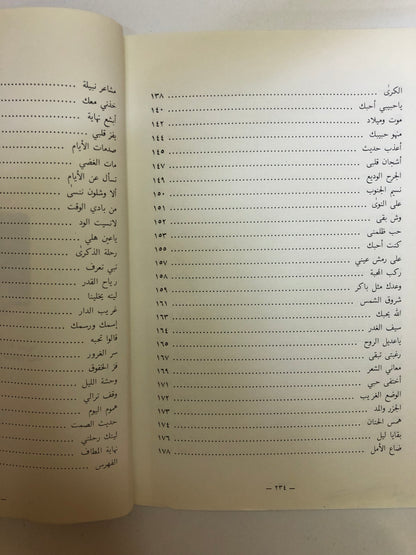 الكرىٰ ١٣٨
ياحبيبي أحبك ١٤٠
موت وميلاد ١٤٢
منهو حبيبك ١٤٤
أعذب حديث ١٤٥
أشجان قلبي ١٤٧
الجرح الوديع ١٤٩
نسيم الجنوب ١٥٠
على النوىٰ ١٥١
وش بقى ١٥٢
حب ظلمني ١٥٣
كنت أحبك ١٥٥
على رمش عيني ١٥٧
ركب المحبة ١٥٨
وعدك مثل باكر ١٥٩
شروق الشمس ١٦١
الله يحبك ١٦٣
سيف الغدر ١٦٤
ياعديل الروح ١٦٥
رغبتى تبقى ١٦٧
معاني الشعر ١٦٨
أختفى حبي ١٧١
الوضع الغريب ١٧٢
الجزر والمد ١٧٣
همس الحنان ١٧٤
بقايا ليل ١٧٦
ضاع الأمل ١٧٨
– ٢٣٤ –
مشاعر نبيلة
خذني معك
أبشع نهاية
يفز قلبي
صدمات الأيام
مات الغضي
نسأل عن الأيام
ألا وشلون ننسى
من بادي الوقت
لانسيت الود
ياعين هلي
رحلة الذكرىٰ
نبي نعرف
رياح القدر
ليته يخلينا
غريب الدار
إسمك ورسمك
قالوا تحبه
سر الغرور
فز الخفوق
وحشة الليل
وقف ترالي
هموم اليوم
حديث الصمت
ليتك رحلتي
نهاية المطاف
الفهرس